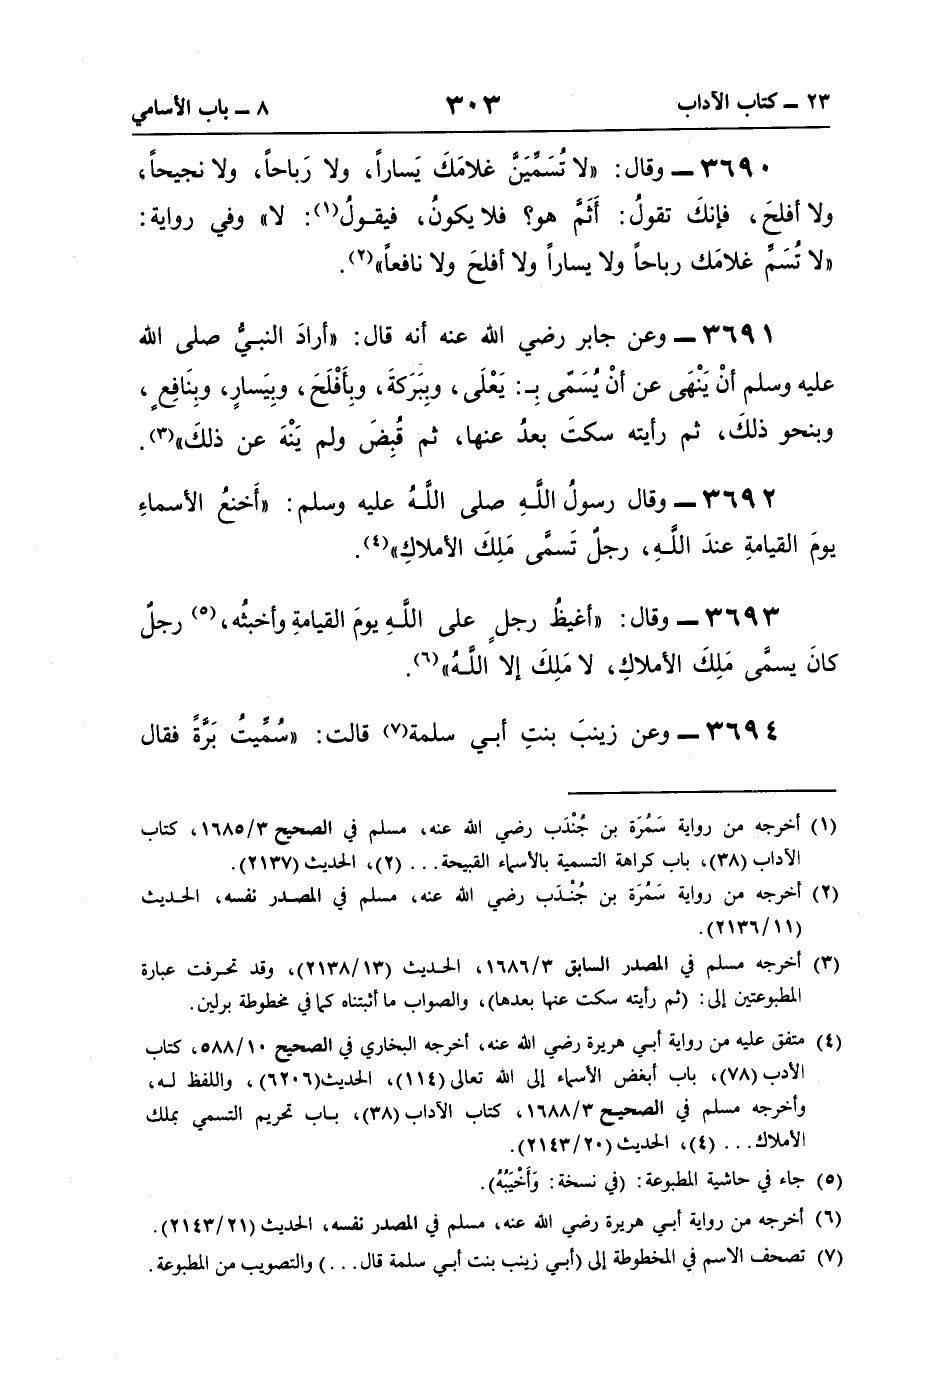 ٢٣ ــ كتاب الآداب ٣٠٣ ٨ ــ باب الأسامي
٣٦٩٠ ــ وقال: «لا تُسَمِّيَنَّ غلامَكَ يَساراً، ولا رَباحاً، ولا نجيحاً،
ولا أفلحَ، فإنكَ تقولُ: أَثَمَّ هو؟ فلا يكونُ، فيقولُ(١): لا» وفي رواية:
«لا تُسَمِّ غلامَك رباحاً ولا يساراً ولا أفلحَ ولا نافعاً»(٢).
٣٦٩١ ــ وعن جابر رضي الله عنه أنه قال: «أرادَ النبيُّ صلى الله
عليه وسلم أنْ يَنْهَى عن أنْ يُسَمّى بِـ: يَعْلَى، وبِبَركةَ، وبِأَفْلَحَ، وبِيَسارٍ، وبِنَافِعٍ،
وبنحو ذلكَ، ثم رأيته سكتَ بعدُ عنها، ثم قُبِضَ ولم يَنْهَ عن ذلكَ»(٣).
٣٦٩٢ ــ وقال رسولُ اللَّهِ صلى اللَّهُ عليه وسلم: «أَخنعُ الأسماءِ
يومَ القيامةِ عندَ اللَّهِ، رجلٌ تَسمَّى مَلِكَ الأملاكِ»(٤).
٣٦٩٣ ــ وقال: «أغيظُ رجلٍ على اللَّهِ يومَ القيامةِ وأخبثُه،(٥) رجلٌ
كانَ يسمَّى مَلِكَ الأملاكِ، لا مَلِكَ إلا اللَّهُ»(٦).
٣٦٩٤ ــ وعن زينبَ بنتِ أبي سلمة(٧) قالت: «سُمِّيتُ بَرَّةً فقال
(١) أخرجه من رواية سَمُرَة بن جُنْدَب رضي الله عنه، مسلم في الصحيح ١٦٨٥/٣، كتاب
الآداب (٣٨)، باب كراهة التسمية بالأسماء القبيحة... (٢)، الحديث (٢١٣٧).
(٢) أخرجه من رواية سَمُرَة بن جُنْدَب رضي الله عنه، مسلم في المصدر نفسه، الحديث
(٢١٣٦/١١).
(٣) أخرجه مسلم في المصدر السابق ١٦٨٦/٣، الحديث (٢١٣٨/١٣)، وقد تحرفت عبارة
المطبوعتين إلى: (ثم رأيته سكت عنها بعدها)، والصواب ما أثبتناه كما في مخطوطة برلين.
(٤) متفق عليه من رواية أبي هريرة رضي الله عنه، أخرجه البخاري في الصحيح ٥٨٨/١٠، كتاب
الأدب (٧٨)، باب أبغض الأسماء إلى الله تعالى (١١٤)، الحديث(٦٢٠٦)، واللفظ له،
وأخرجه مسلم في الصحيح ١٦٨٨/٣، كتاب الآداب (٣٨)، باب تحريم التسمي بملك
الأملاك... (٤)، الحديث (٢١٤٣/٢٠).
(٥) جاء في حاشية المطبوعة: (في نسخة: وَأَخْيَبُهُ).
(٦) أخرجه من رواية أبي هريرة رضي الله عنه، مسلم في المصدر نفسه، الحديث (٢١٤٣/٢١).
(٧) تصحف الاسم في المخطوطة إلى (أبي زينب بنت أبي سلمة قال...) والتصويب من المطبوعة.